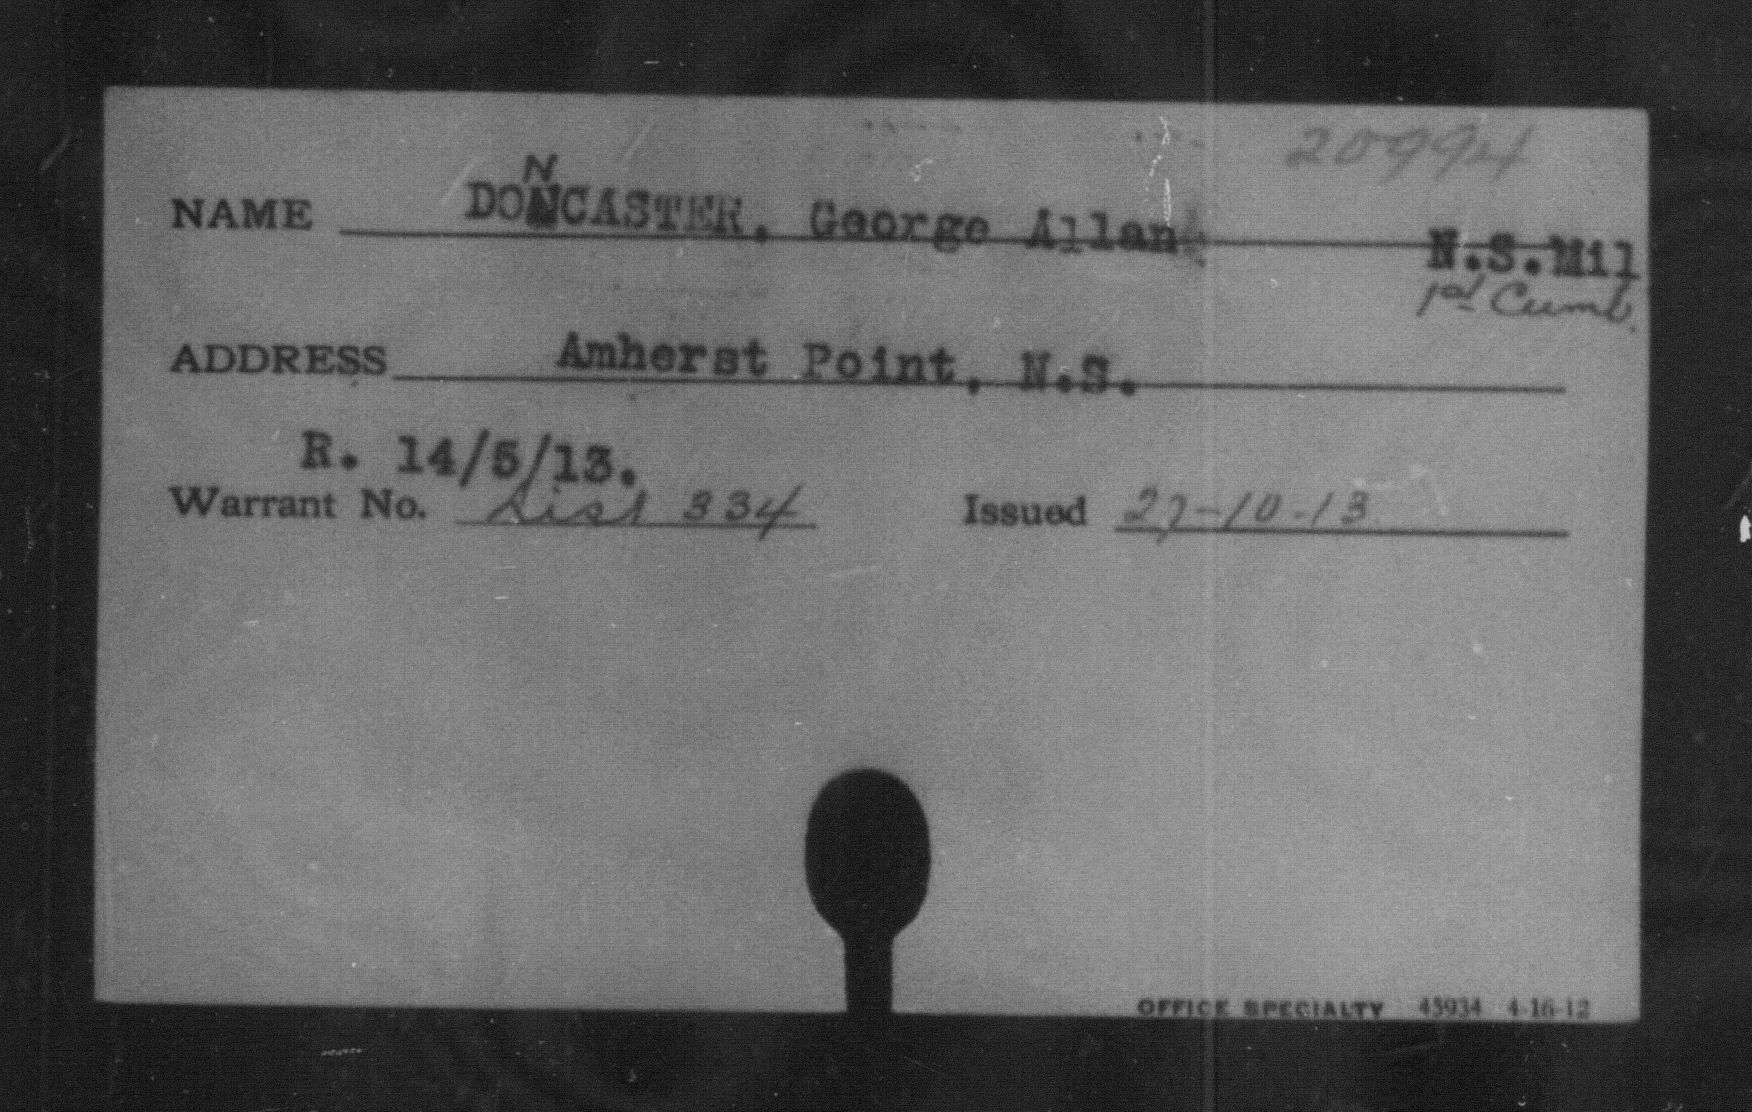 20994
NAME DONCASTER, George Allan
N
N.S.Mil
1st Cumb.
ADDRESS Amherst Point, N.S.
R. 14/5/13.
Warrant No. List 334 Issued 27-10-13
OFFICE SPECIALTY 45934 4-16-12